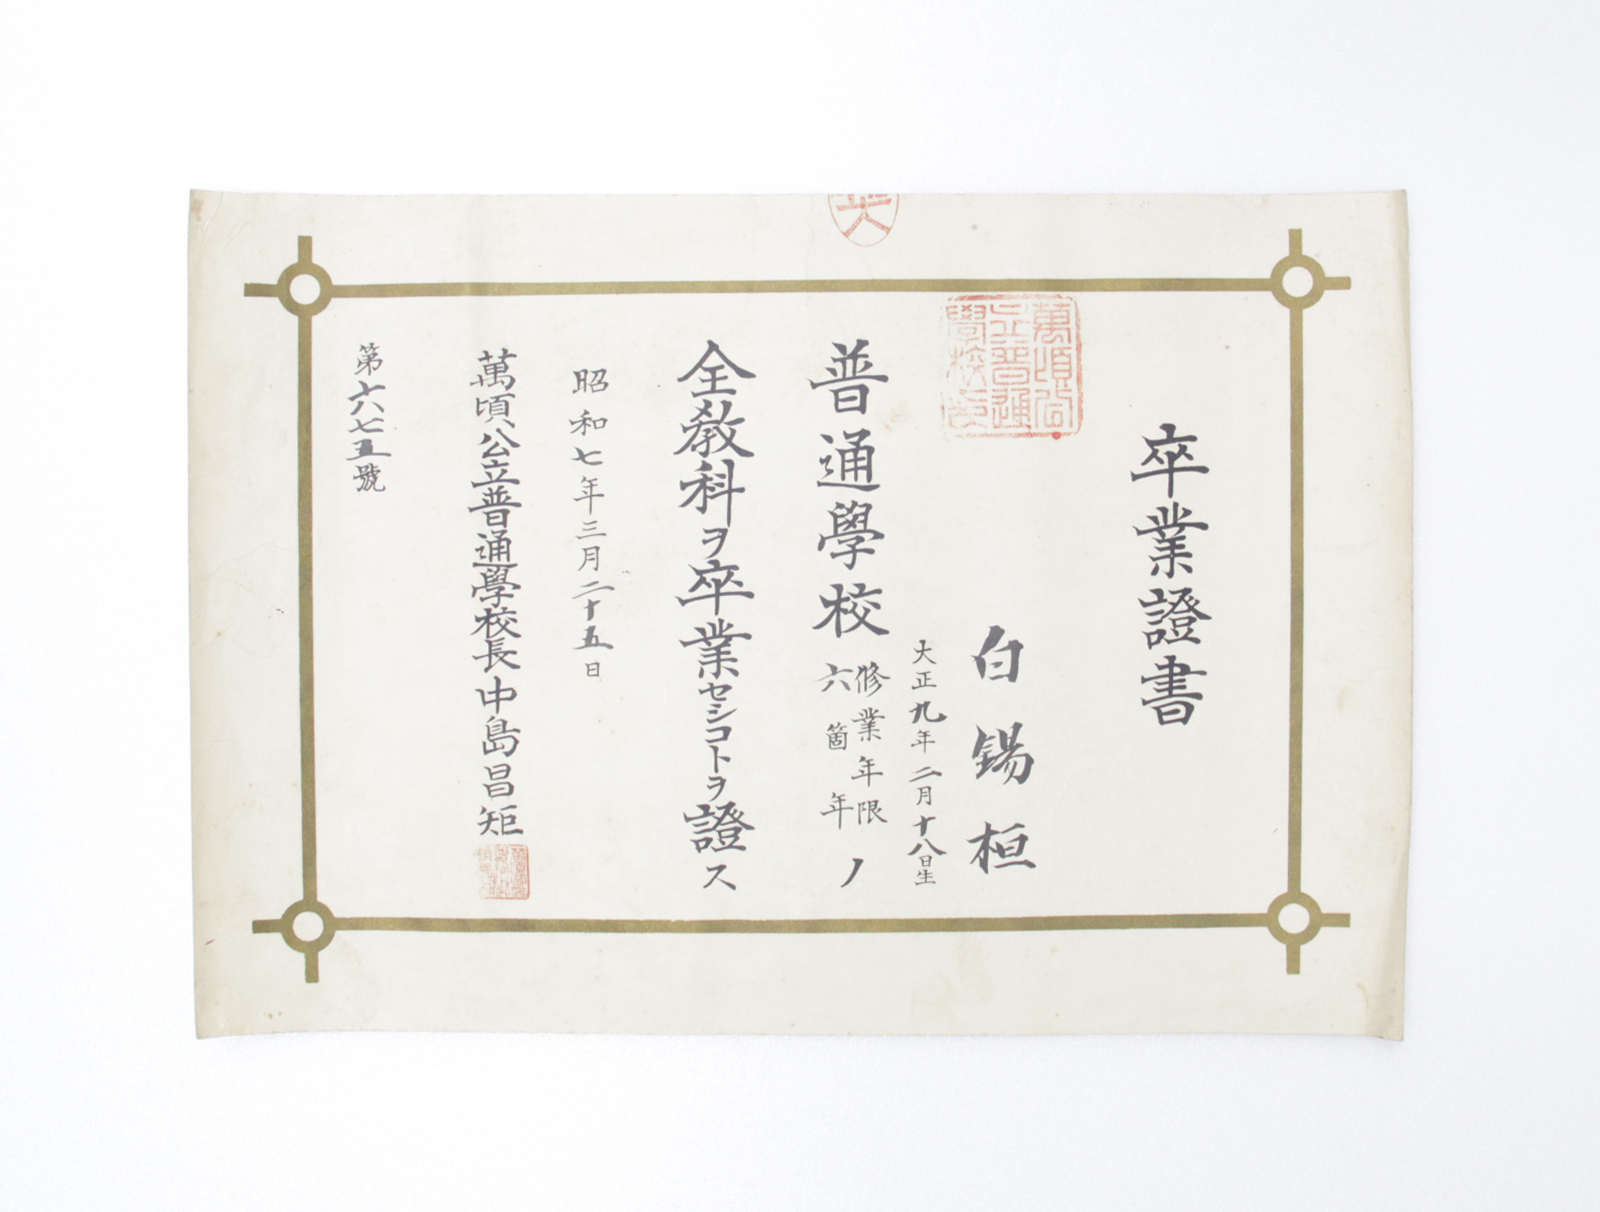 卒業證書
白錫桓
大正九年二月十八日生
普通學校修業年限六箇年ノ
全教科ヲ卒業セシコトヲ證ス
昭和七年三月二十五日
萬頃公立普通學校長中島昌矩
第六八七五號
萬頃公
立普通
學校印